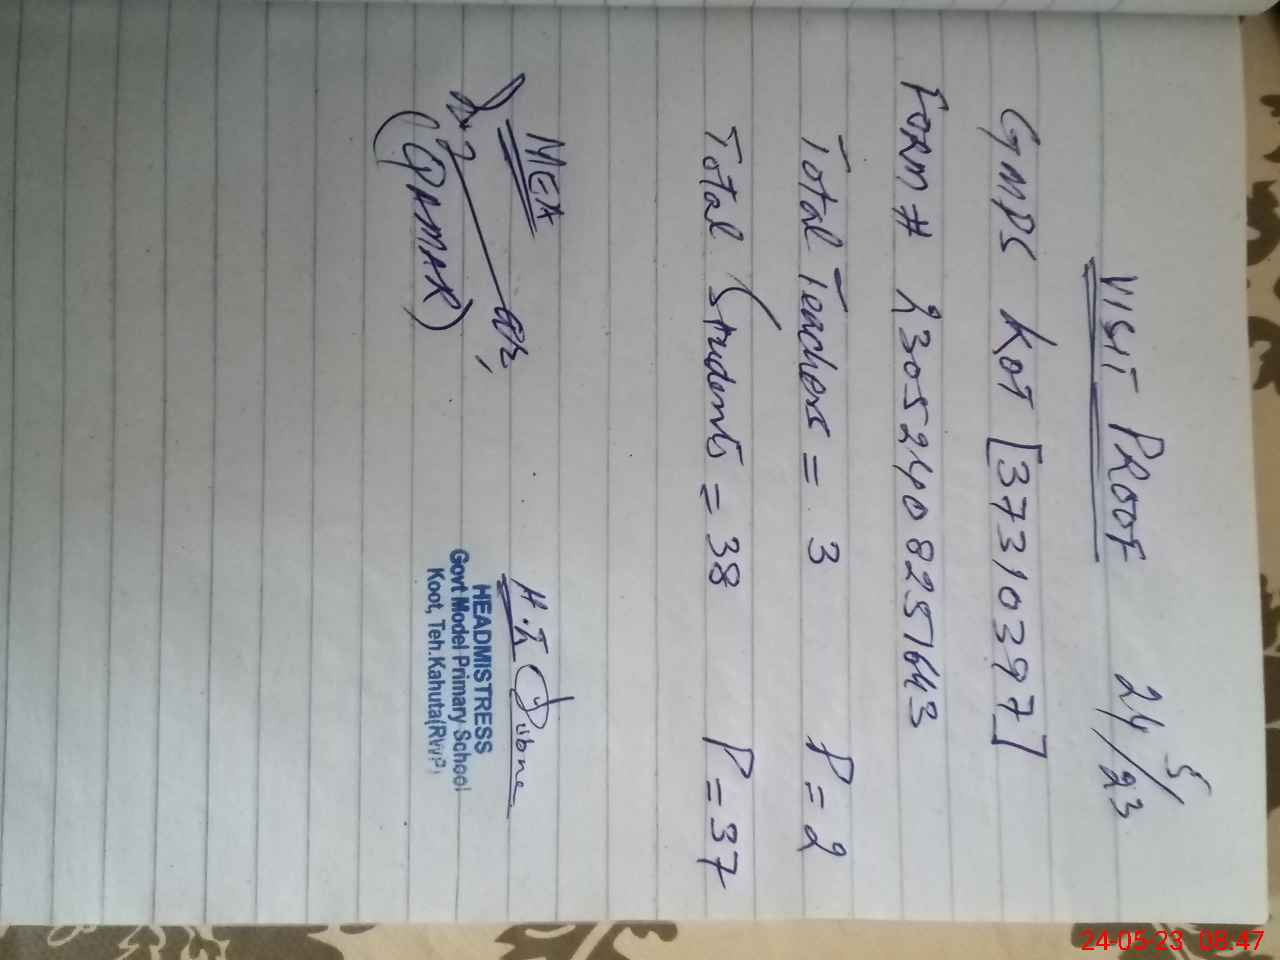 VISIT PROOF 24/5/23
GMPS KOT [37310397]
FORM # 230524082571643
Total Teachers = 3 P = 2
Total Students = 38 P = 37
MEA
(QAMAR)
H.T
HEADMISTRESS
Govt Model Primary School
Koot, Teh.Kahuta(RWP)
24-05-23 08:47